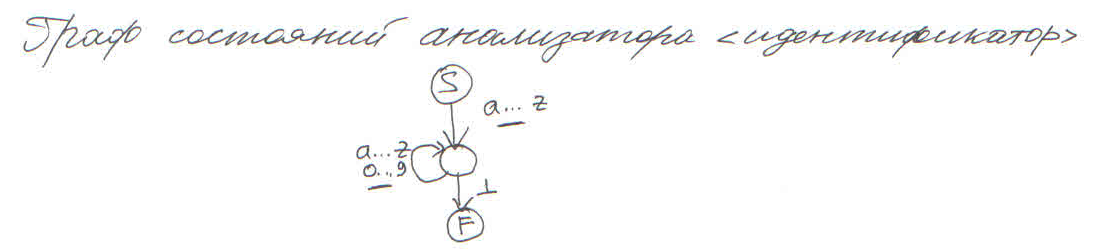 Граф состояний анализатора <идентификатор>
S
a... z
a...z
0...9
⊥
F